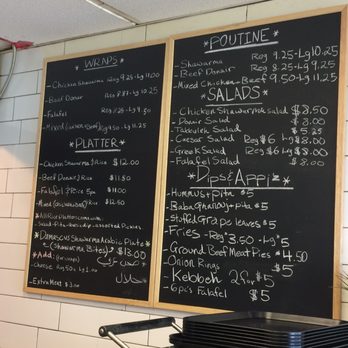 *WRAPS*
- Chicken Shawarma Reg 9.25-Lg 11.00
- Beef Donair Reg 8.87-Lg 11.25
- Falafel
*PLATTER*
- Chicken Shawarma/Rice $12.00
- Beef Donair/Rice $11.50
- Falafel/Rice 5pis $11.00
- Mixed $12.50
*All Rice Platters come with
*Damascus Shawarma Arabic Plate*
(Shawarma Bites) $13.00
*Add: (for wraps)
- Cheese Reg 50¢ Lg 1.00
- Extra Meat $3.00
حلال
*POUTINE*
- Shawarma Reg 9.25-Lg 10.25
- Beef Donair Reg 8.25-Lg 9.25
- Mixed Chicken + Beef 9.50-Lg 11.25
*SALADS*
- Chicken Shawarma salad $8.50
- Donair Salad $8.00
- Tabbouleh Salad $5.25
- Caesar Salad Reg $6 Lg $8.00
- Greek Salad Reg $6 Lg $8.00
- Falafel Salad $8.00
*Dips & Appiz*
- Hummus + pita $5
- Baba ghanouj + pita $5
- Stuffed Grape leaves $5
- Fries - Reg $3.50 - Lg $5
- Ground Beef Meat Pies $4.50
- Onion Rings $5
- Kebbeh 2 for $5
- 6 pi's Falafel $5